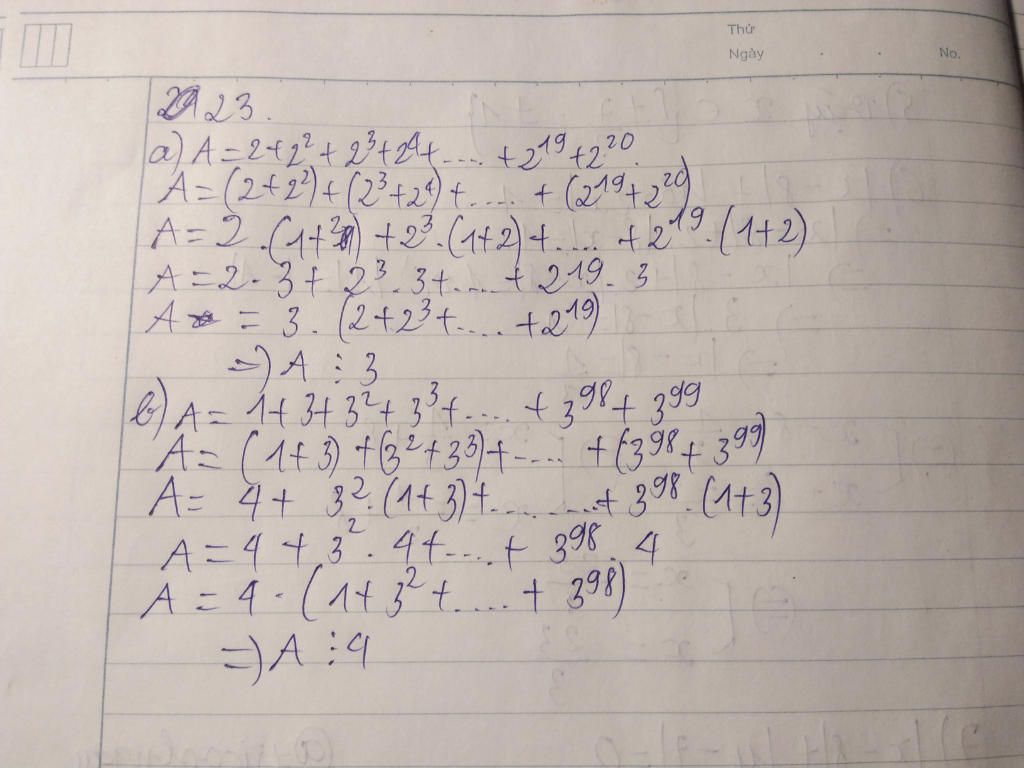 Thứ
Ngày . . No.
23.
a) A = 2 + 2² + 2³ + 2⁴ + .... + 2¹⁹ + 2²⁰.
A = (2 + 2²) + (2³ + 2⁴) + .... + (2¹⁹ + 2²⁰)
A = 2 . (1 + 2) + 2³ . (1 + 2) + .... + 2¹⁹ . (1 + 2)
A = 2 . 3 + 2³ . 3 + .... + 2¹⁹ . 3
A = 3 . (2 + 2³ + .... + 2¹⁹)
=) A ⋮ 3
b) A = 1 + 3 + 3² + 3³ + .... + 3⁹⁸ + 3⁹⁹
A = (1 + 3) + (3² + 3³) + .... + (3⁹⁸ + 3⁹⁹)
A = 4 + 3² . (1 + 3) + ........ + 3⁹⁸ . (1 + 3)
A = 4 + 3² . 4 + .... + 3⁹⁸ . 4
A = 4 . (1 + 3² + .... + 3⁹⁸)
=) A ⋮ 4